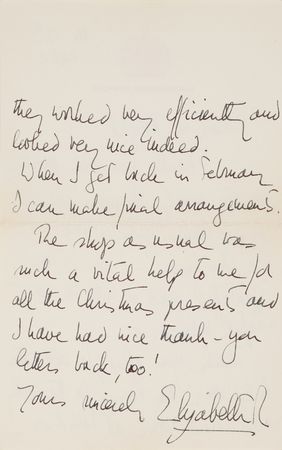 they worked very efficiently and
looked very nice indeed.
When I get back in February
I can make final arrangements.
The shop as usual was
such a vital help to me for
all the Christmas presents and
I have had nice thank-you
letters back, too!
Yours sincerely Elizabeth R